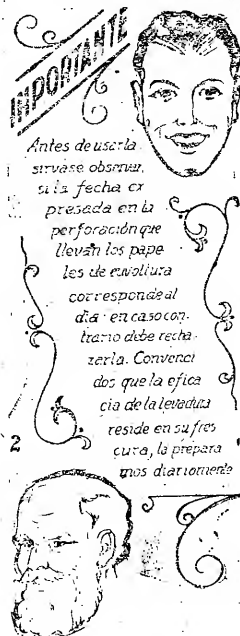 IMPORTANTE
Antes de usarla
sirvase observar,
si la fecha ex
presada en la
perforación que
llevan los pape
les de envoltura
corresponde al
dia en caso con.
trario debe recha.
zarla. Convenci
dos que la efica
cia de la levadura
reside en su fres
cura, la prepara
mos diariamente
2